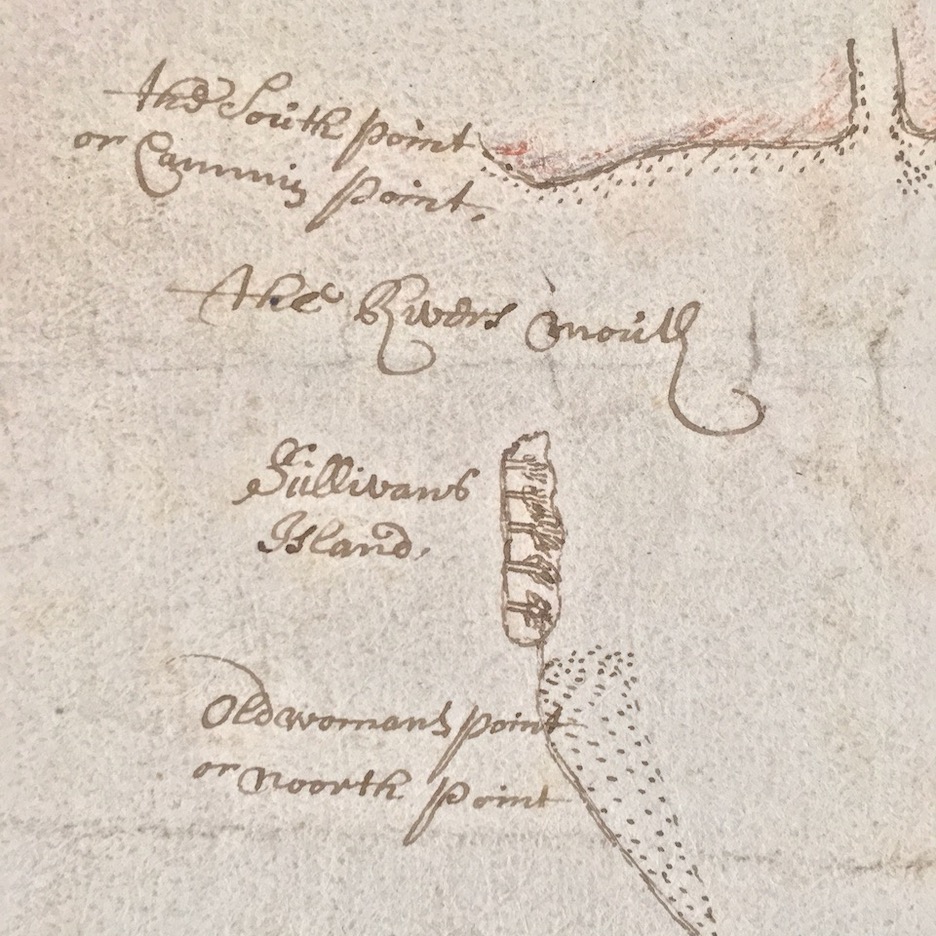 the South point
or Cumming point.
the Rivers mouth
Sullivans
Island.
Oldwomans point
or Noorth point